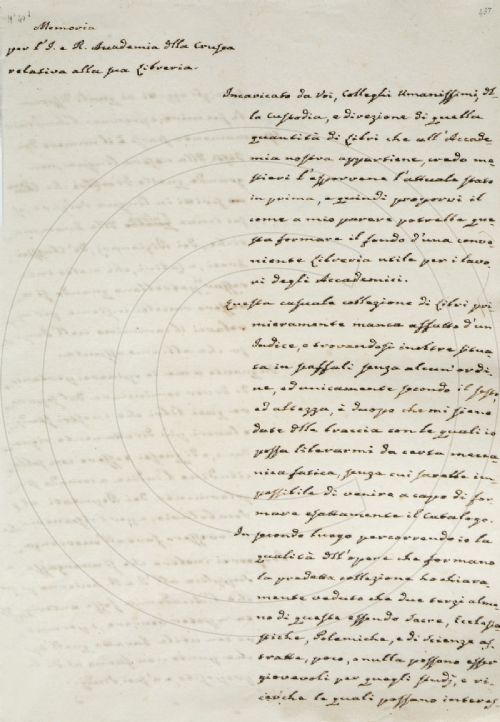 N° 40
437
Memoria
per l'I. e R. Accademia dlla Crusca
relativa alla sua Libreria.
Incaricato da Voi, Colleghi Umanissimi, dl
la Custodia, e direzione di quella
quantità di Libri che all'Accade-
mia nostra appartiene, credo me-
stieri l'esporvene l'attuale stato
in prima, e quindi proporvi il
come a mio parere potrebbe que-
sta formare il fondo d'una conve-
niente Libreria utile per i lavo-
ri degli Accademici.
Questa casuale collezione di Libri pri
mieramente manca affatto d'un
Indice, e trovandosi inoltre situa
ta in scaffali senza alcun ordi-
ne, ed unicamente secondo il sesto
ed altezza, è duopo che mi sieno
date dlle braccia con le quali io
possa liberarmi da certa mecca
nica fatica, senza cui sarebbe im-
possibile di venire a capo di for
mare esattamente il Catalogo.
In secondo luogo percorrendo io la
qualità dll'opere che formano
la predetta collezione ho chiara
mente veduto che due terzi alme
no di queste essendo Sacre, Ecclesia
stiche, Polemiche, e di Scienze as
tratte, poco, o nulla possono esser
giovevoli per quegli studj, e ri-
cerche le quali possono interes